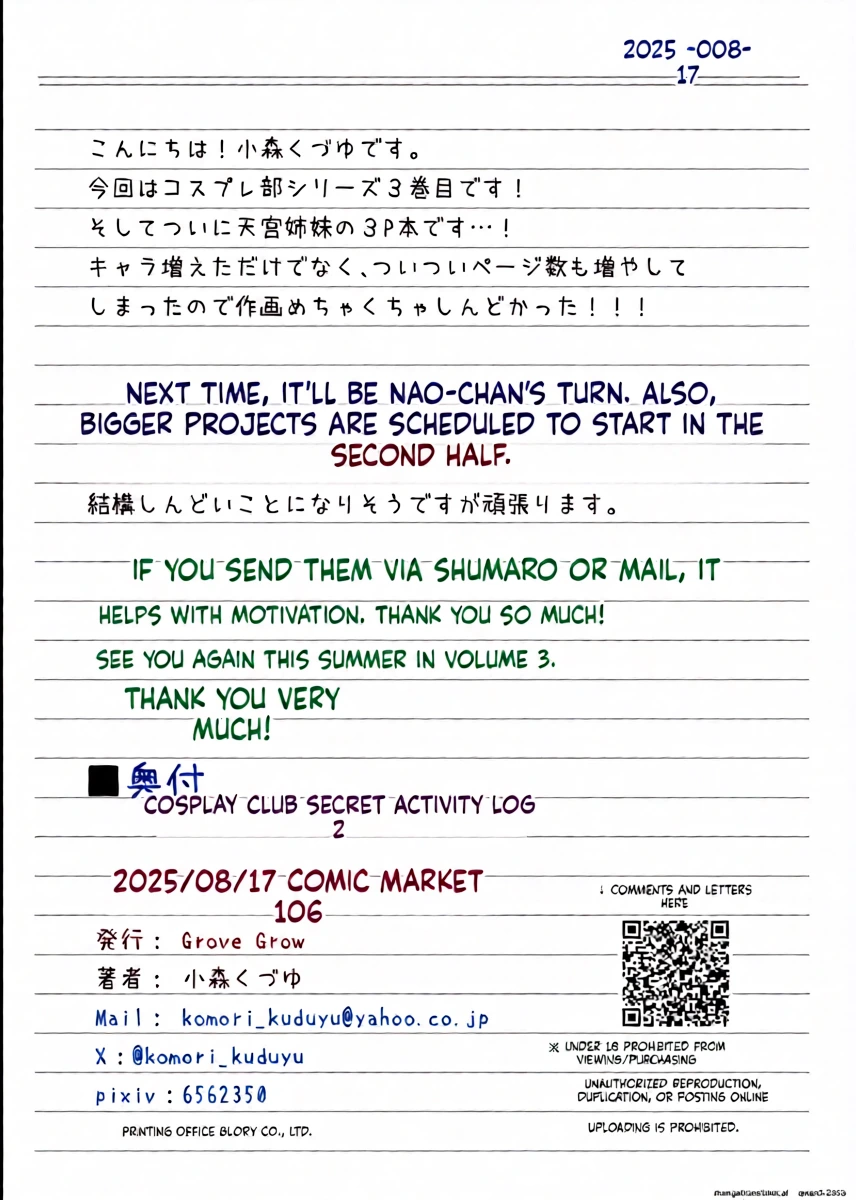 2025 -008-
17
こんにちは！小森くづゆです。
今回はコスプレ部シリーズ３巻目です！
そしてついに天宮姉妹の３P本です…！
キャラ増えただけでなく、ついついページ数も増やして
しまったので作画めちゃくちゃしんどかった！！！
NEXT TIME, IT'LL BE NAO-CHAN'S TURN. ALSO,
BIGGER PROJECTS ARE SCHEDULED TO START IN THE
SECOND HALF.
結構しんどいことになりそうですが頑張ります。
IF YOU SEND THEM VIA SHUMARO OR MAIL, IT
HELPS WITH MOTIVATION. THANK YOU SO MUCH!
SEE YOU AGAIN THIS SUMMER IN VOLUME 3.
THANK YOU VERY
MUCH!
■奥付
COSPLAY CLUB SECRET ACTIVITY LOG
2
2025/08/17 COMIC MARKET
106
発行： Grove Grow
著者： 小森くづゆ
Mail： komori_kuduyu@yahoo.co.jp
X：@komori_kuduyu
pixiv：6562350
PRINTING OFFICE BLORY CO., LTD.
↓ COMMENTS AND LETTERS
HERE
※ UNDER 18 PROHIBITED FROM
VIEWING/PURCHASING
UNAUTHORIZED REPRODUCTION,
DUPLICATION, OR POSTING ONLINE
UPLOADING IS PROHIBITED.